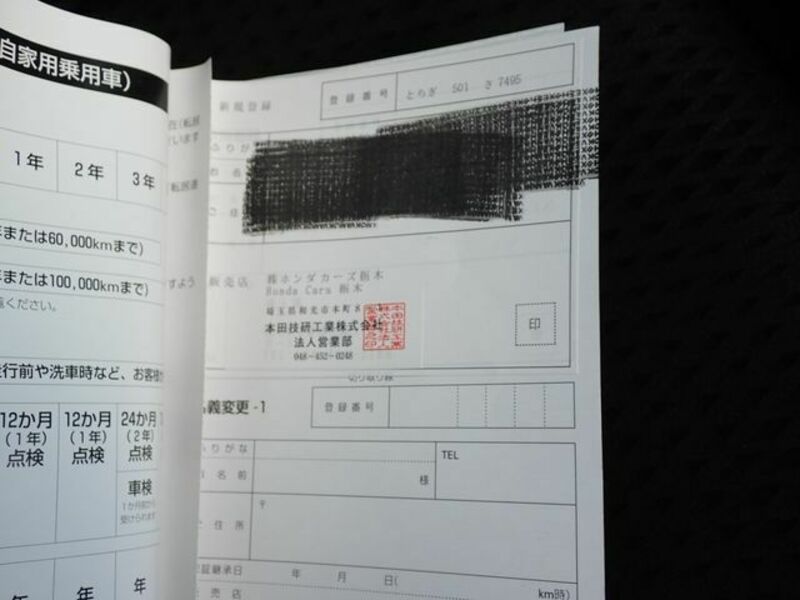 自家用乗用車）
1年 2年 3年
または60,000kmまで）
または100,000kmまで）
ください。
行前や洗車時など、お客様
12か月
（1年）
点検
12か月
（1年）
点検
24か月
（2年）
点検
車検
1か月前から
受けられます
年 年 年
新規登録
登録番号 とちぎ 501 さ 7495
ふりが
お名
ご住
すよう
販売店 ㈱ホンダカーズ栃木
Honda Cars 栃木
埼玉県和光市本町8
本田技研工業株式会社
法人営業部
048-452-0248
印
切り取り線
名義変更-1
登録番号
ふりがな
お名前
様
TEL
〒
ご住所
保証継承日 年 月 日（
km時）
販売店